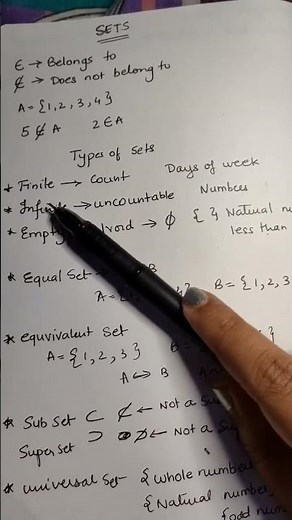 SETS
∈ → Belongs to
∉ → Does not belong to
A = {1, 2, 3, 4}
5 ∉ A 2 ∈ A
Types of Sets
* Finite → Count Days of week
* → uncountable Numbers
* void → ϕ { } Natural
less than
* Equal Set B
A = B = {1, 2, 3
* equivalent Set
A = {1, 2, 3} B =
A ↔ B
* Sub Set ⊂ ⊄ ← Not a
Super Set ⊃ ⊅ ← Not a
* universal Set {whole number
{Natural number
{odd num